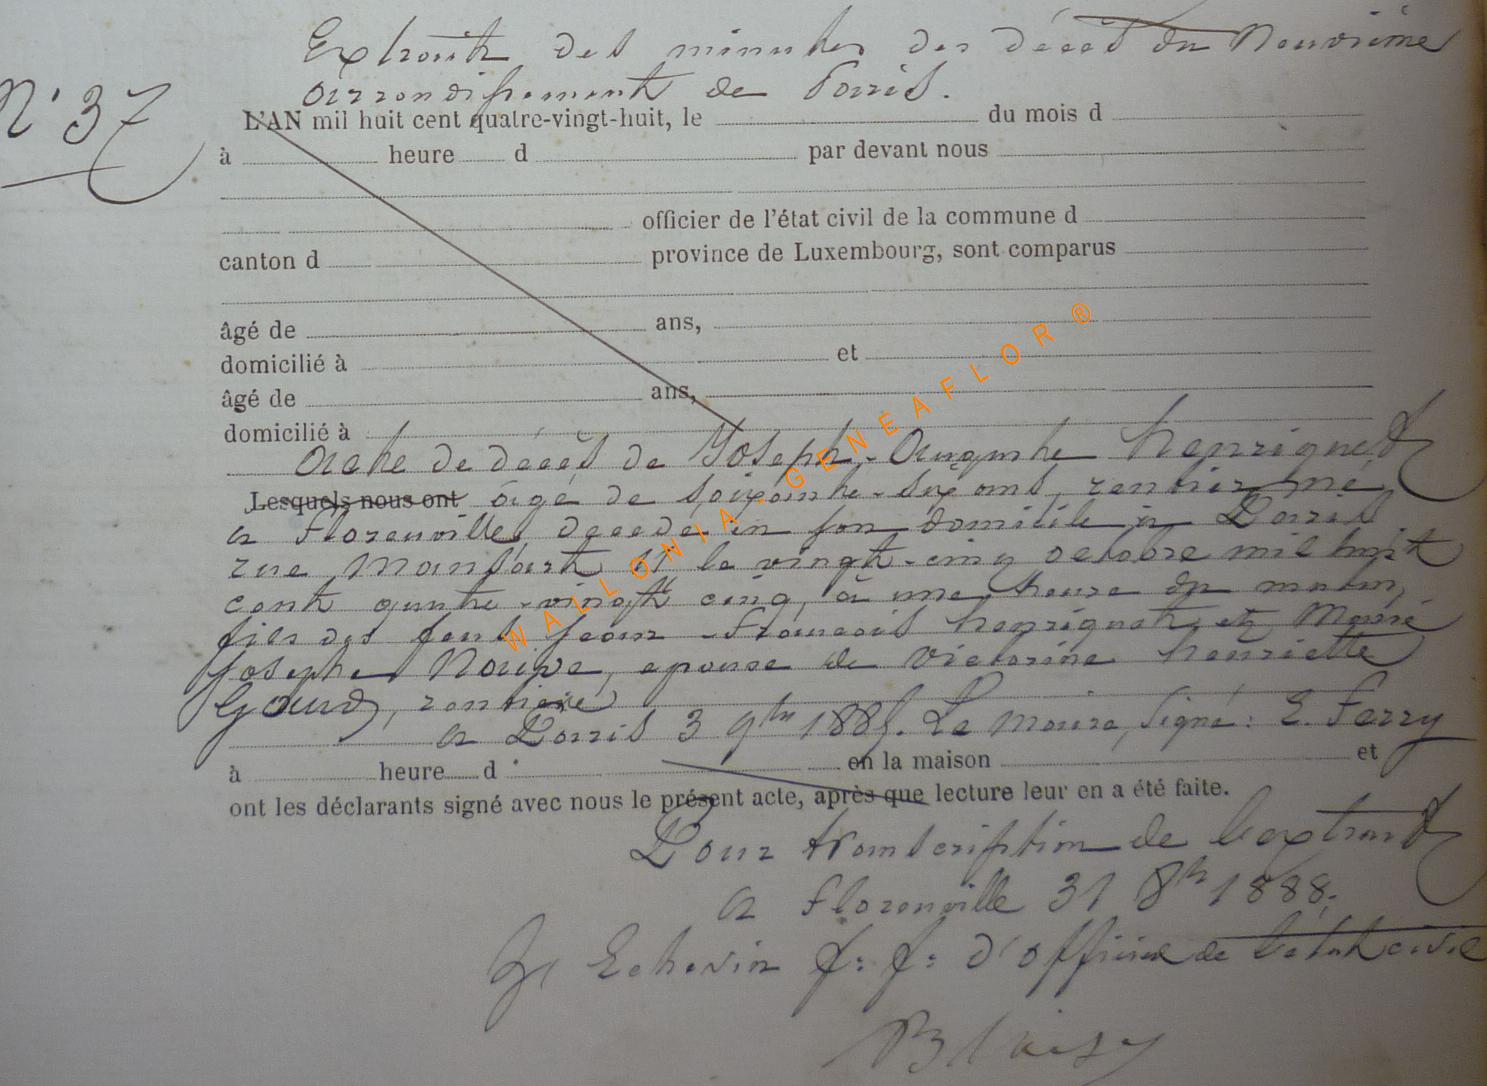 Extrait des minutes des décès du Neuvième
N° 37
arrondissement de Paris.
L'AN mil huit cent quatre-vingt-huit, le du mois d
à heure d par devant nous
officier de l'état civil de la commune d
canton d province de Luxembourg, sont comparus
âgé de ans,
domicilié à et
âgé de ans,
domicilié à
Acte de décès de Joseph-Auguste Henriquet
Lesquels nous ont âgé de soixante-six ans, rentier né
a Florenville, décédé en son domicile à Paris
rue Mansart le vingt-cinq octobre mil huit
cent quatre-vingt cinq, à une heure du matin,
fils des feus Jean-François Henriquet et Marie
Josephe epouse de Victorine Henriette
rentière
a Paris 3 9bre 1885. Le maire, signé: E. Ferry
à heure d en la maison et
ont les déclarants signé avec nous le présent acte, après que lecture leur en a été faite.
Pour transcription de l'extrait
a Florenville 31 8bre 1888.
L'Echevin f: f: d'officier de l'état civil
Blaisy
WALLONIA - GÉNÉAFLOR ®